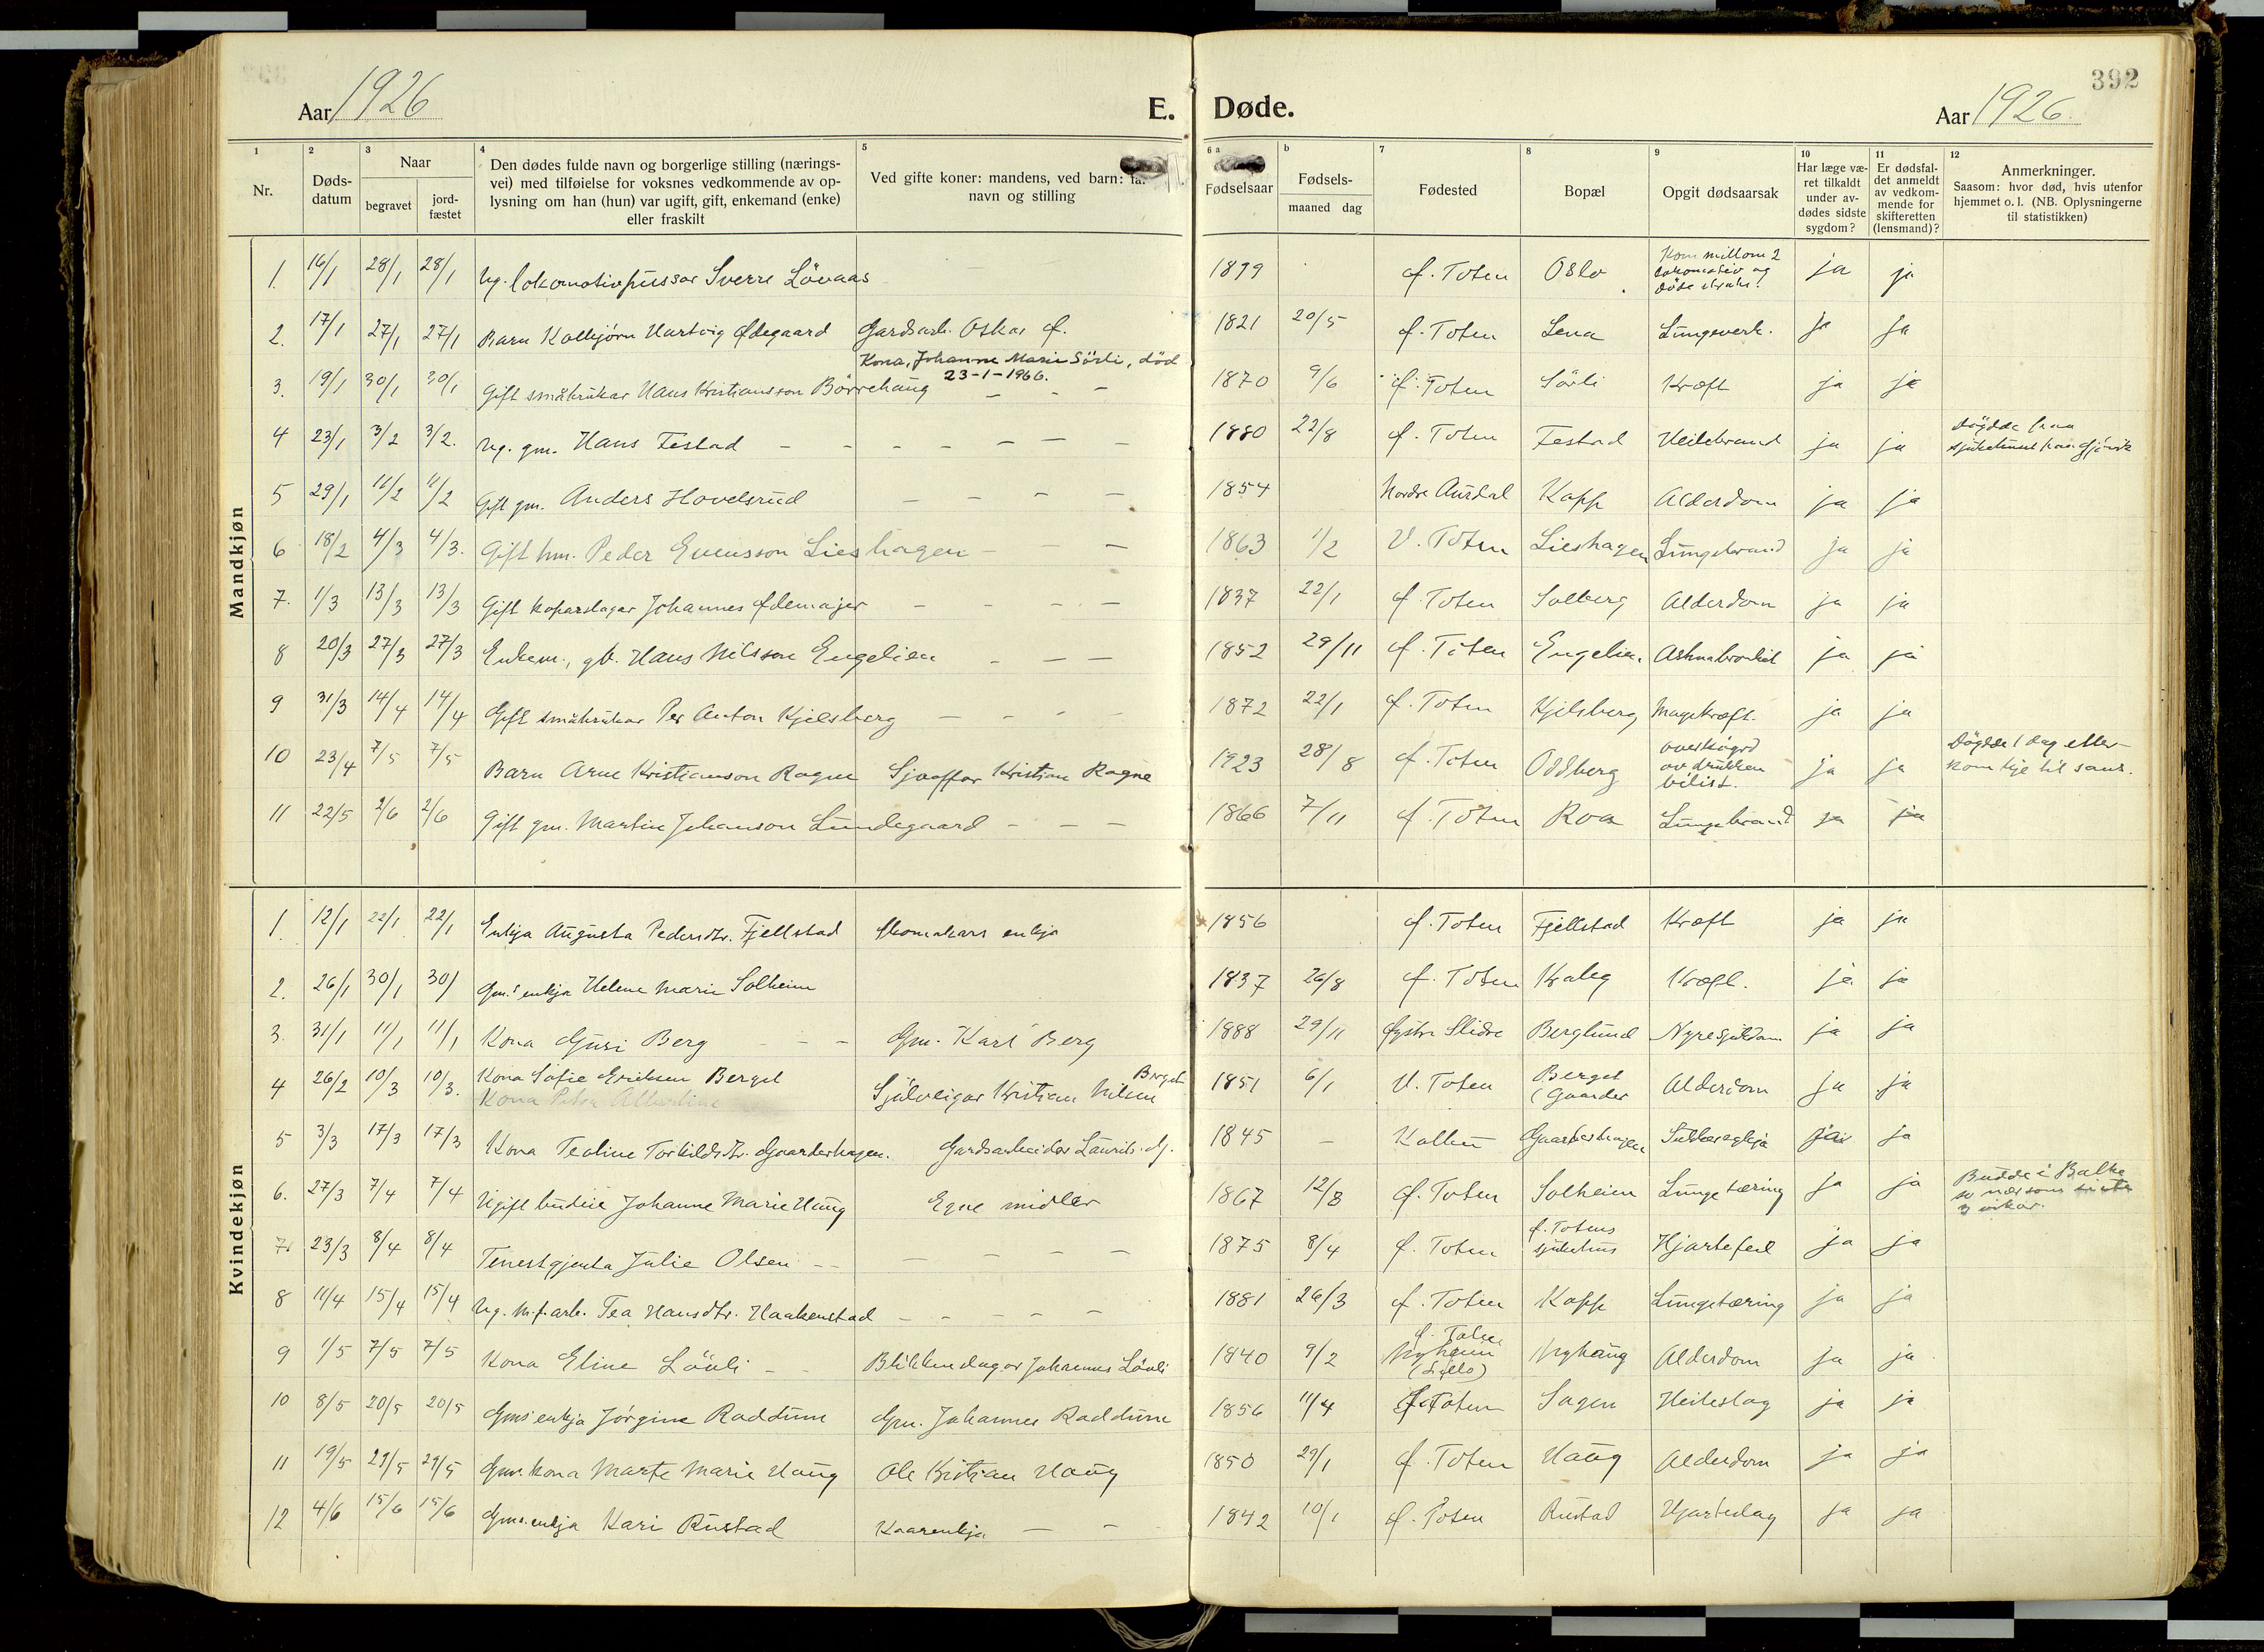 392
Aar 1926 E. Døde. Aar 1926
1 2 3 4 5 6 a b 7 8 9 10 11 12
Nr. Døds-datum Naar begravet jord-fæstet Den dødes fulde navn og borgerlige stilling (nærings-vei) med tilføielse for voksnes vedkommende av op-lysning om han (hun) var ugift, gift, enkemand (enke) eller fraskilt Ved gifte koner: mandens, ved barn: navn og stilling Fødselsaar Fødsels-maaned dag Fødested Bopæl Opgit dødsaarsak Har læge væ-ret tilkaldt under av-dødes sidste sygdom? Er dødsfal-det anmeldt av vedkom-mende for skifteretten (lensmand)? Anmerkninger. Saasom: hvor død, hvis utenfor hjemmet o. l. (NB. Oplysningerne til statistikken)
Mandkjøn
1. 16/1 28/1 28/1 Ug. lokomotivpussar Sverre Lövaas 1899 Ø. Toten Oslo Kom millom 2 lokomotiv og döde straks! ja ja
2. 17/1 27/1 27/1 Barn Kolbjörn Hartvig Ødegaard Gardsarb. Oskar Ø. 1821 20/5 Ø. Toten Lena Lungeverk. ja ja
Kona, Johanne Marie Sörli, död 23-1-1966.
3. 19/1 30/1 30/1 Gift småbrukar Hans Kristiansson Börrehaug - - - 1870 9/6 Ø. Toten Sörli Kræft ja ja
4 23/1 3/2 3/2. Ug. gm. Hans Festad - - - - - - - 1880 22/8 Ø. Toten Festad Heilebrand ja ja Döydde paa sjukehuset paa Gjövik
5 29/1 11/2 11/2 Gift gm. Anders Hovelsrud - - - - 1854 Nordre Aurdal Kapp Alderdom ja ja
6 18/2 4/3 4/3. Gift hm. Peder Evensson Lieshagen - - - 1863 1/2 V. Toten Lieshagen Lungebrand ja ja
7. 1/3 13/3 13/3 Gift koparslagar Johannes Ødemajer - - - - 1837 22/1 Ø. Toten Solberg Alderdom ja ja
8 20/3 27/3 27/3 Enkem., gb. Hans Nilsson Engelien - - - 1852 29/11 Ø. Toten Engelien Astmabronkit ja ja
9 31/3 14/4 14/4 Gift småbrukar Per Anton Kjelsberg - - - - 1872 22/1 Ø. Toten Kjelsberg Magekræft. ja ja
10 23/4 7/5 7/5 Barn Arne Kristianson Rogne Sjaaffør Kristian Rogne 1923 28/8 Ø. Toten Oddberg overkøyrd av drukken bilist. ja ja Döydde 1 dag etter- kom ikje til sans.
11 22/5 2/6 2/6 Gift gm. Martin Johanson Lundegaard - - - 1866 7/11 Ø. Toten Roa Lungebrand ja ja
Kvindekjøn
1. 12/1 22/1 22/1 Enkja Augusta Pedersdtr. Fjellstad Skomakars enkja 1856 Ø. Toten Fjellstad Kræft ja ja
2. 26/1 30/1 30/ Gm.s enkja Helene Marie Solheim 1837 26/8 Ø. Toten Kræft. ja ja
3. 31/1 11/1 11/1 Kona Guri Berg - - - Gm. Karl Berg 1888 29/11 Øystre Slidre Berglund Nyresjukdom ja ja
4 26/2 10/3 10/3. Kona Sofie Eriksen Berget Sjölveigar Kristian Nilsen Berget 1851 6/1 V. Toten Berget (Gaarder Alderdom ja ja
Kona Petra Albertine
5 3/3 17/3 17/3 Kona Teoline Torkildsdtr. Gaarderhagen. Gardsarbeidar Laurits G. 1845 - Kolbu Gaarderhagen ja ja
6. 27/3 7/4 7/4 Ugift budeie Johanne Marie Haug Egne midler 1867 12/8 Ø. Toten Solheim Lungetæring ja ja Budde i Balke so nær som siste 3 vikor.
7. 23/3 8/4 8/4 Tenestgjenta Julie Olsen - - - - - - 1875 8/4 Ø. Toten Ø. Totens sjukehus Hjartefeil ja ja
8 11/4 15/4 15/4 Ug. m.f.arb. Tea Hansdtr. Haakenstad - - - - - 1881 26/3 Ø. Toten Kapp Lungetæring ja ja
9 1/5 7/5 7/5 Kona Eline Lövli - - Blikkenslagar Johannes Lövli 1840 9/2 Ø. Toten Nyhaug Alderdom ja ja
10 8/5 20/5 20/5 Gms enkja Jörgine Raddum Gm. Johannes Raddum 1856 11/4 Ø. Toten Sagen Heileslag ja ja
11 19/5 29/5 29/5 Gms. kona Marte Marie Haug Ole Kristian Haug 1850 29/1 Ø. Toten Haug Alderdom ja ja
12 4/6 15/6 15/6 Gms. enkja Kari Rustad Kaarenkja - - 1842 10/1 Ø. Toten Rustad Hjarteslag ja ja